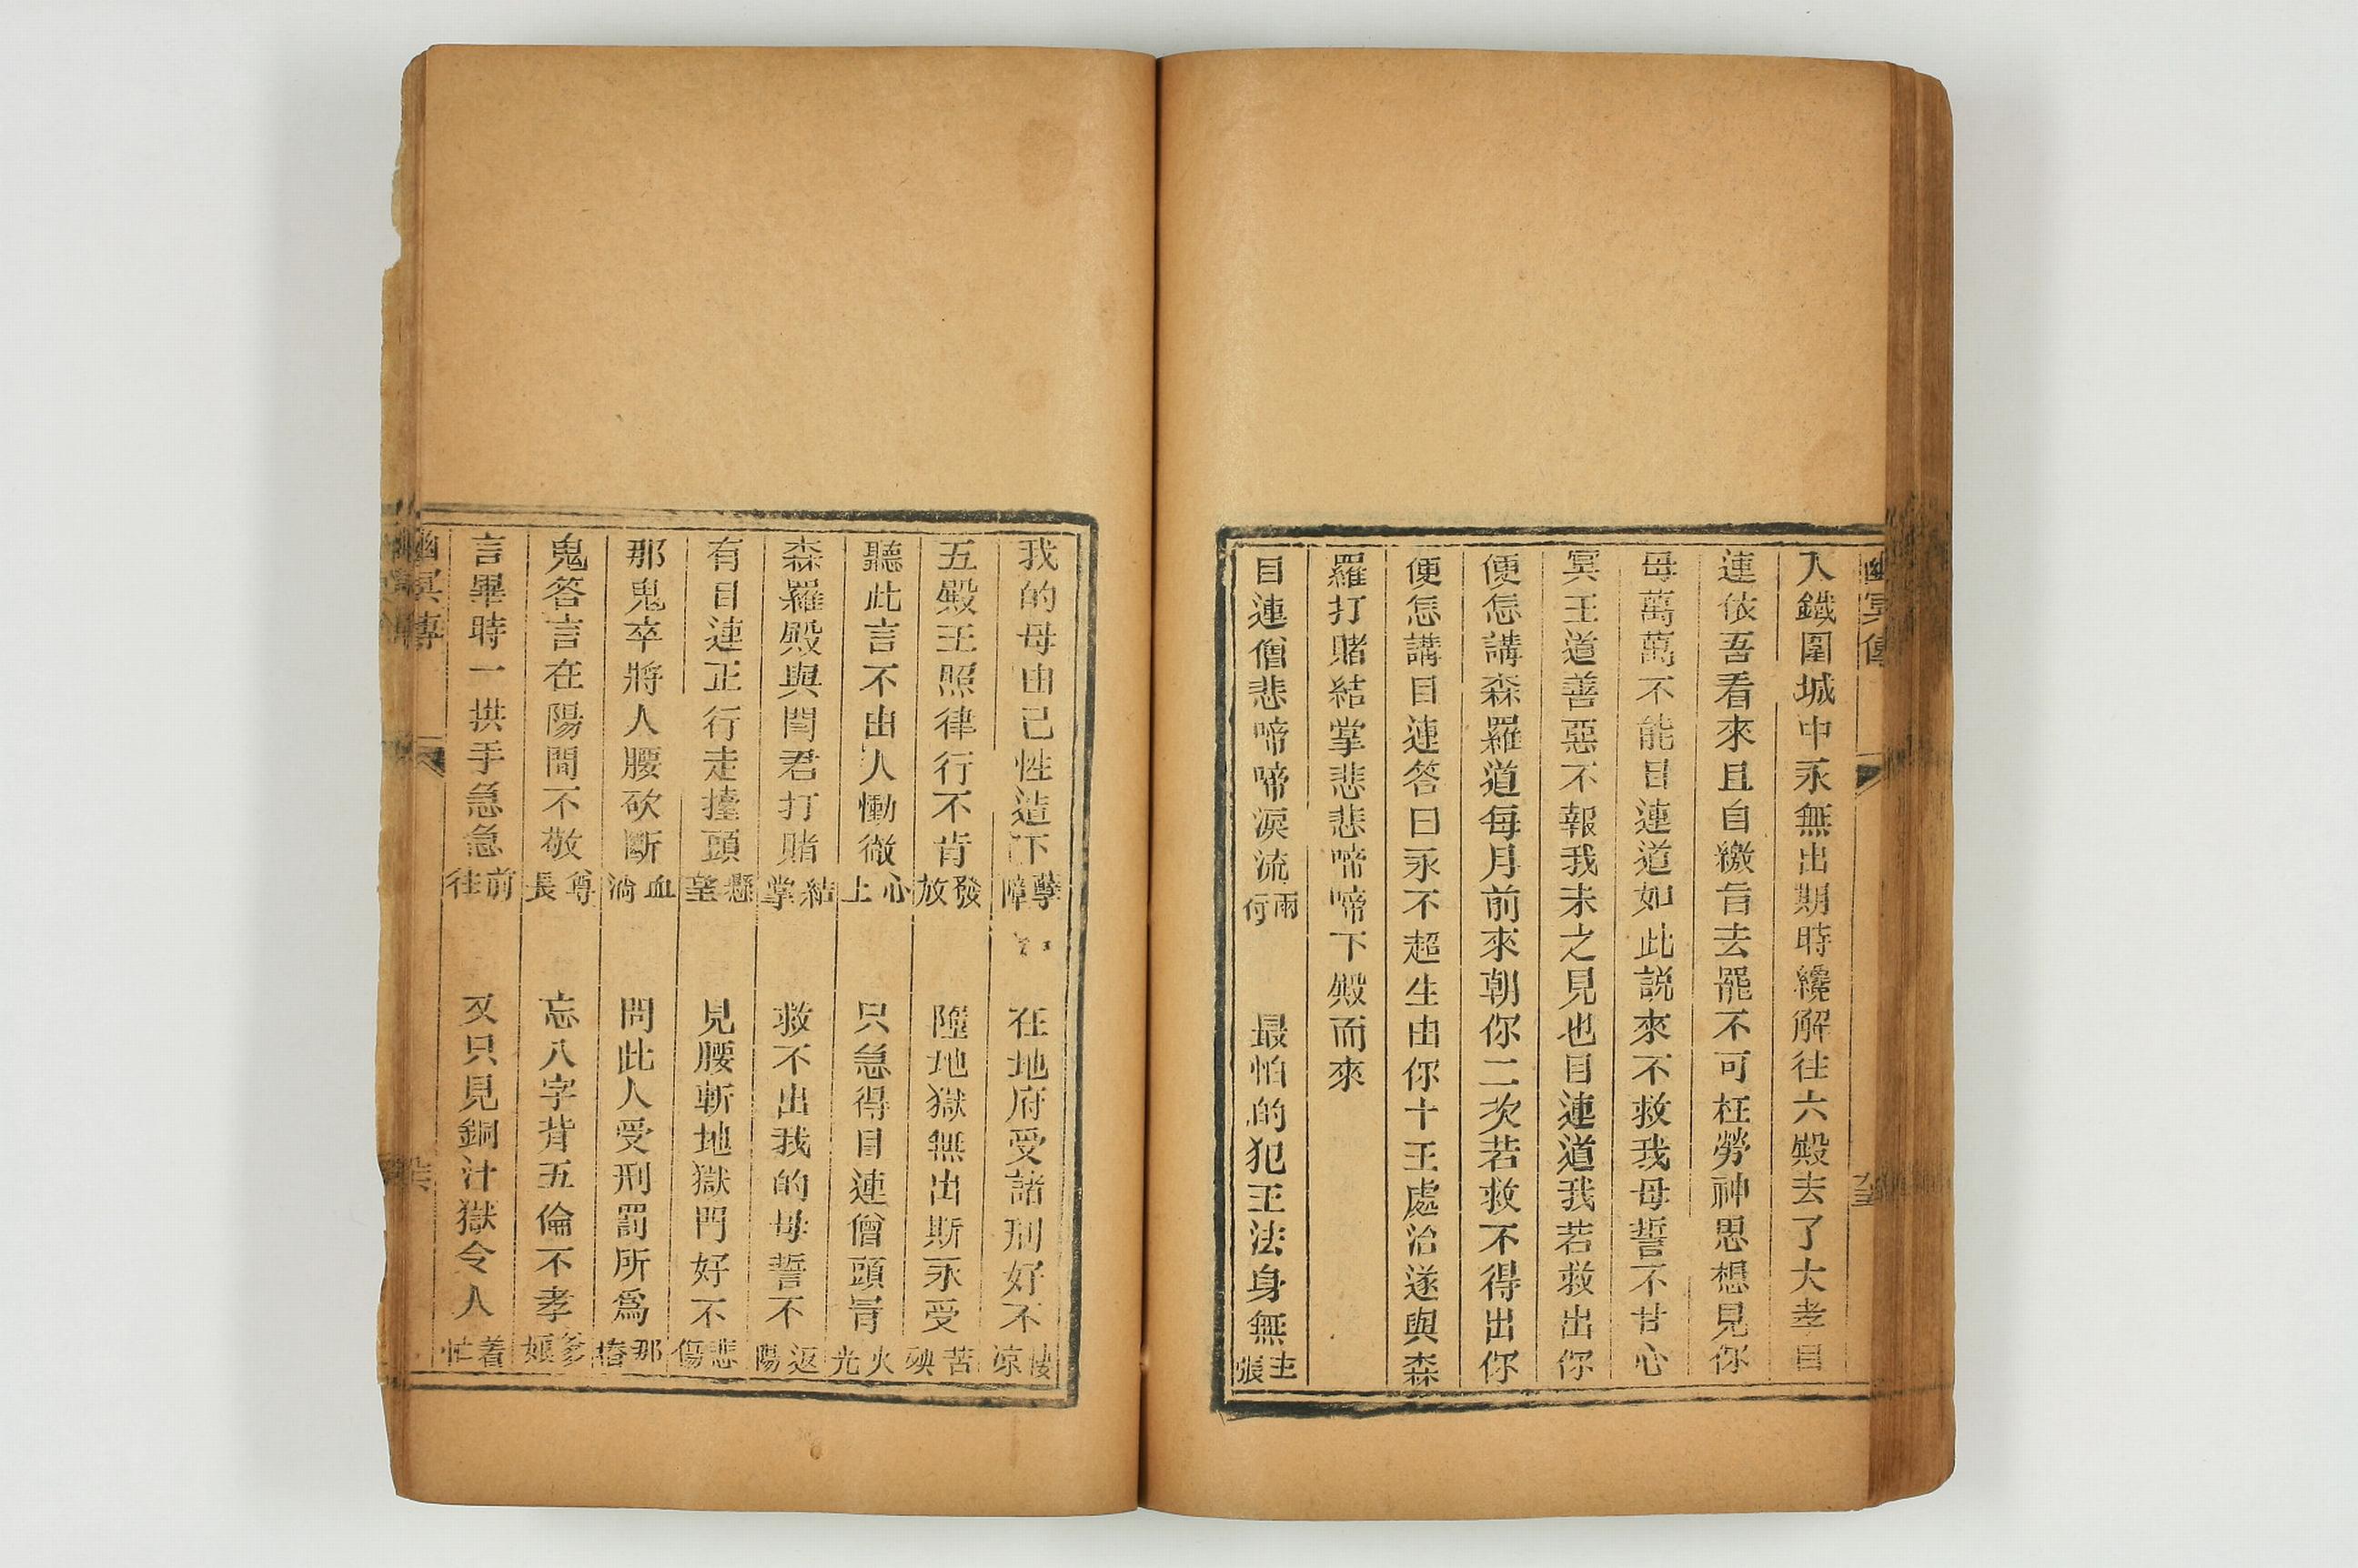 幽冥傳
入鐵圍城中永無出期時纔解往六殿去了大孝目
連依吾看來且自繳旨去罷不可枉勞神思想見你
母萬萬不能目連道如此説來不救我母誓不甘心
冥王道善惡不報我未之見也目連道我若救出你
便怎講森羅道每月前來朝你二次若救不得出你
便怎講目連答曰永不超生由你十王處治遂與森
羅打賭結掌悲悲啼啼下殿而來
目連僧悲啼啼淚流兩行　最怕的犯王法身無主張
我的母由己性造下孽障　在地府受諸刑好不凄凉
五殿王照律行不肯發放　墮地獄無出斯永受苦殃
聽此言不由人慟傲心上　只急得目連僧頭冐火光
森羅殿與閆君打賭結掌　救不出我的母誓不返陽
有目連正行走擡頭懸望　見腰斬地獄門好不悲傷
那鬼卒將人腰砍斷血淌　問此人受刑罰所爲那樁
鬼答言在陽間不敬尊長　忘八字背五倫不孝爹娘
言畢時一拱手急急前往　又只見銅汁獄令人着忙
幽冥傳